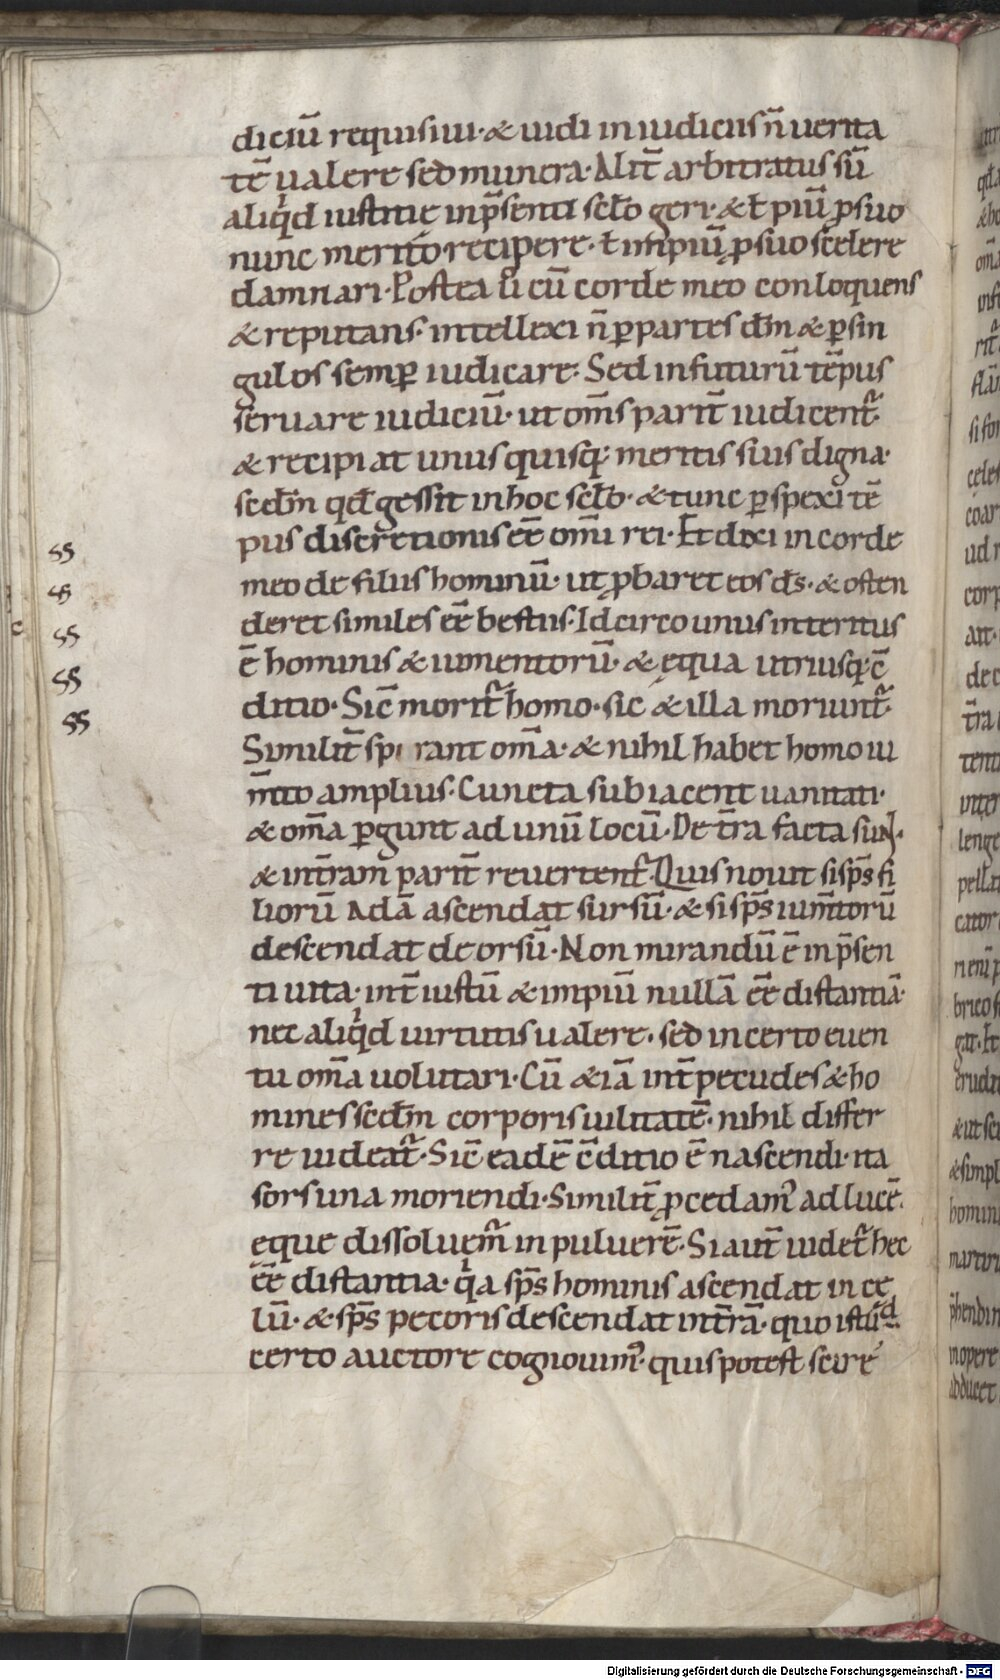 diciū requisiui· & uidi in iudiciis n̄ uerita
tē ualere sed munera· Alit̄ arbitratus sū
aliq̍d iustitie in p̄senti sc̄lo geri· & ł piū ꝓ suo
nunc merito recipere· ł impiū ꝓ suo scelere
damnari· Postea ū cū corde meo conloquens
& reputans· intellexi n̄ ꝑ partes dm̄ & ꝑ sin
gulos semꝑ iudicare· Sed in futurū tēpus
seruare iudiciū· ut om̄s parit̄ iudicent᷑·
& recipiat unusquisq; meritis suis digna·
scdm̄ qđ gessit in hoc sc̄lo· & tunc ꝑspexi tē
pus discretionis eē om̄i rei· Et dixi in corde
meo de filiis hominū· ut ꝓbaret eos d̄s· & osten
deret similes eē bestiis· Idcirco unus interitus
ē hominis & iumentorū· & ęqua utriusq; c̄
ditio· Sic̄ morit᷑ homo· sic & illa moriunt᷑·
Similit̄ spirant om̄a· & nihil habet homo iu
m̄to amplius· Cuncta subiacent uanitati·
& om̄a ꝑgunt ad unū locū· De t̄ra facta sunt·
& in t̄ram parit̄ revertent᷑· Quis nouit si sp̄s fi
liorū Adā ascendat sursū· & si sp̄s ium̄torū
descendat deorsū· Non mirandū ē in p̄sen
ti uita· int̄ iustū & impiū nullā eē distantiā·
nec aliq̍d uirtutis ualere· sed incerto euen
tu om̄a uolutari· Cū & iā int̄ pecudes & ho
mines scdm̄ corporis uilitatē· nihil differ
re uideat᷑· Sic̄ eadē c̄ditio ē nascendi· ita
sors una moriendi· Similit̄ ꝓcedam᷒ ad lucē·
ęque dissoluem᷑ in puluerē· Si aut̄ uidet᷑ hec
eē distantia· q̍a sp̄s hominis ascendat in cę
lū· & sp̄s pecoris descendat in t̄rā· quo istud
certo auctore cognouim᷒· quis potest scire
ss
ss
ss
ss
ss
Digitalisierung gefördert durch die Deutsche Forschungsgemeinschaft - DFG